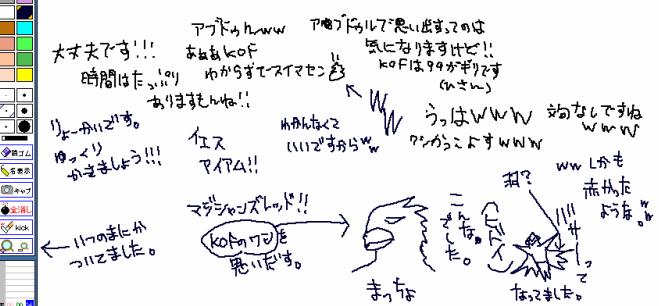 大丈夫です!!!
時間はたっぷり
ありますもんね!!
アブドゥルww
ああぁKOF
わからずでースイマセン
アブドゥルで思い出すってのは
気になりますけど!!
KOFは99がギリです
りょーかいです。
ゆっくり
かきましょう!!!
イエス
アイアム!!
わかんなくて
いいですからww
WW
うっはwww
効なしですね
www
マジシャンズレッド!!
KOFのワンを
思いだす。
いつのまにか
ついてました。
まっちょ
こんな。
でした。
羽?
wwしかも
赤かった
ような。ww
って
なってました。
鏡ゴム
名表示
キャプ
全消し
kick